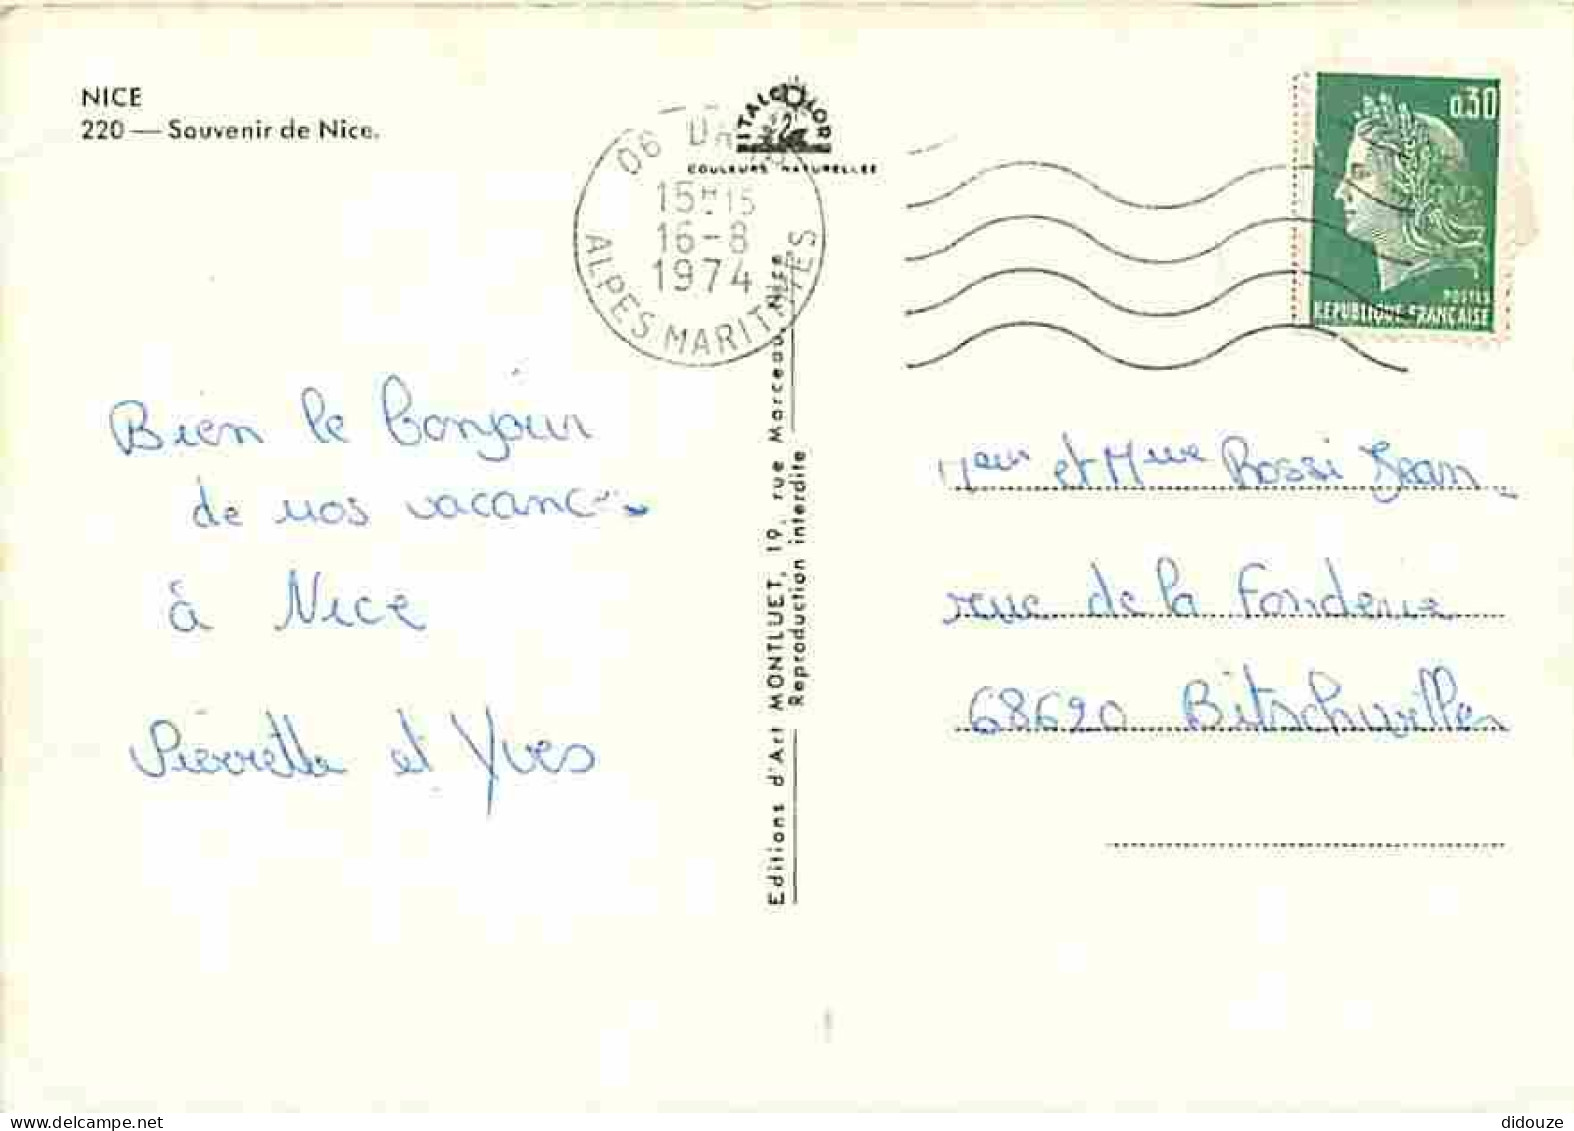 NICE
220 — Souvenir de Nice.
ITALCOLOR
COULEURS NATURELLES
06
15H15
16-8
1974
ALPES MARITIMES
0,30
POSTES
REPUBLIQUE FRANÇAISE
Bien le bonjour
de nos vacances
à Nice
Pierrette et Yves
Editions d'Art MONTLUET, 19, rue Marceau, Nice
Reproduction interdite
et Mme Rossi Jean
rue de la Fonderie
68620 Bitschwiller
didouze